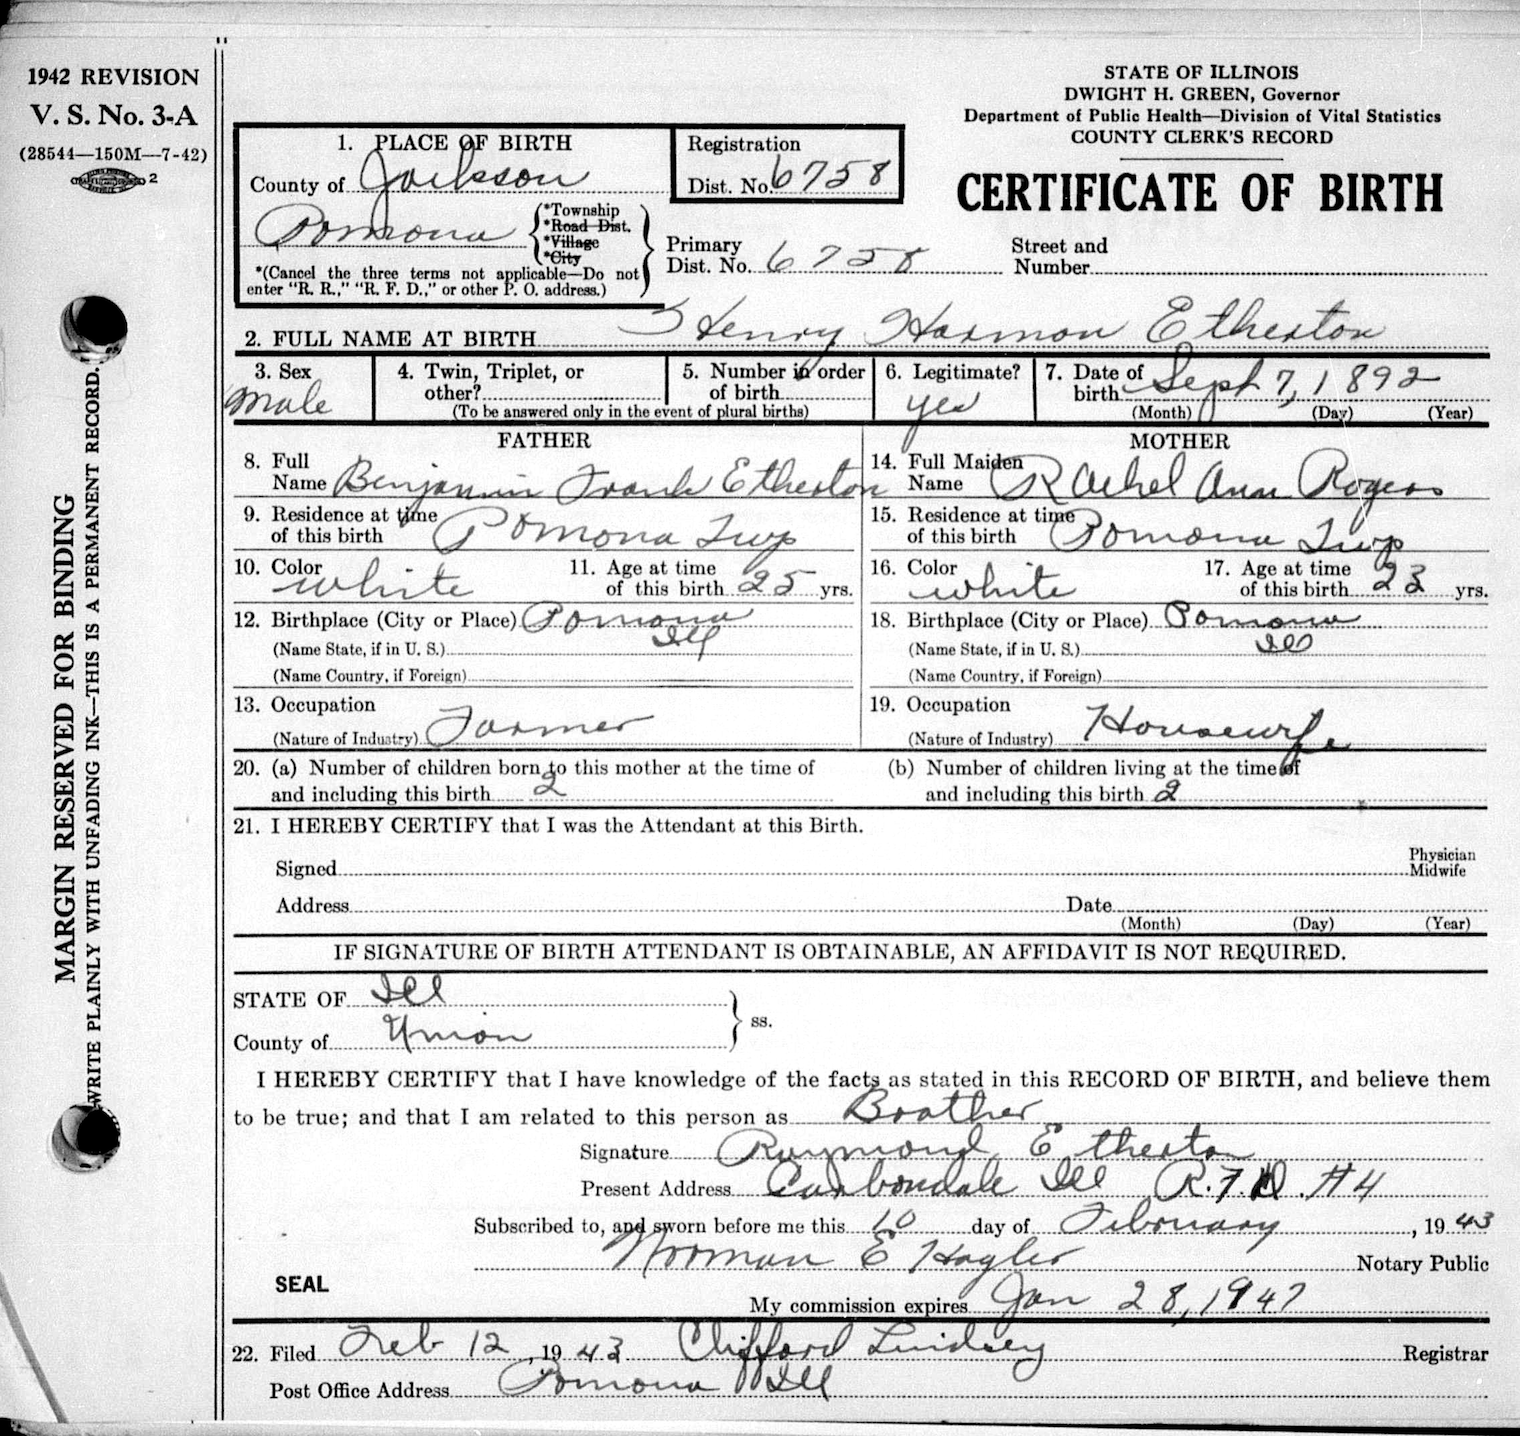 1942 REVISION
V. S. No. 3-A
(28544—150M—7-42)
2
MARGIN RESERVED FOR BINDING
WRITE PLAINLY WITH UNFADING INK—THIS IS A PERMANENT RECORD.
STATE OF ILLINOIS
DWIGHT H. GREEN, Governor
Department of Public Health—Division of Vital Statistics
COUNTY CLERK'S RECORD
CERTIFICATE OF BIRTH
1. PLACE OF BIRTH
County of Jackson
Registration
Dist. No. 6758
Pomona
*Township
*Road Dist.
*Village
*City
*(Cancel the three terms not applicable—Do not
enter "R. R.," "R. F. D.," or other P. O. address.)
Primary
Dist. No. 6758
Street and
Number
2. FULL NAME AT BIRTH Henry Harmon Etherton
3. Sex
Male
4. Twin, Triplet, or
other?
5. Number in order
of birth
(To be answered only in the event of plural births)
6. Legitimate?
yes
7. Date of
birth Sept 7, 1892
(Month) (Day) (Year)
FATHER
8. Full
Name Benjamin Frank Etherton
9. Residence at time
of this birth Pomona Twp
10. Color
white
11. Age at time
of this birth 25 yrs.
12. Birthplace (City or Place) Pomona
(Name State, if in U. S.) Ill
(Name Country, if Foreign)
13. Occupation
(Nature of Industry) Farmer
MOTHER
14. Full Maiden
Name Rachel Ann Rogers
15. Residence at time
of this birth Pomona Twp
16. Color
white
17. Age at time
of this birth 23 yrs.
18. Birthplace (City or Place) Pomona
(Name State, if in U. S.) Ill
(Name Country, if Foreign)
19. Occupation
(Nature of Industry) Housewife
20. (a) Number of children born to this mother at the time of
and including this birth 2
(b) Number of children living at the time of
and including this birth 2
21. I HEREBY CERTIFY that I was the Attendant at this Birth.
Signed
Physician
Midwife
Address Date
(Month) (Day) (Year)
IF SIGNATURE OF BIRTH ATTENDANT IS OBTAINABLE, AN AFFIDAVIT IS NOT REQUIRED.
STATE OF Ill
County of Union
ss.
I HEREBY CERTIFY that I have knowledge of the facts as stated in this RECORD OF BIRTH, and believe them
to be true; and that I am related to this person as Brother
Signature Raymond Etherton
Present Address Carbondale Ill R.F.D. #4
Subscribed to, and sworn before me this 10 day of February, 1943
Norman E Hagler Notary Public
SEAL
My commission expires Jan 28, 1947
22. Filed Feb 12, 1943 Clifford Lindsey Registrar
Post Office Address Pomona Ill